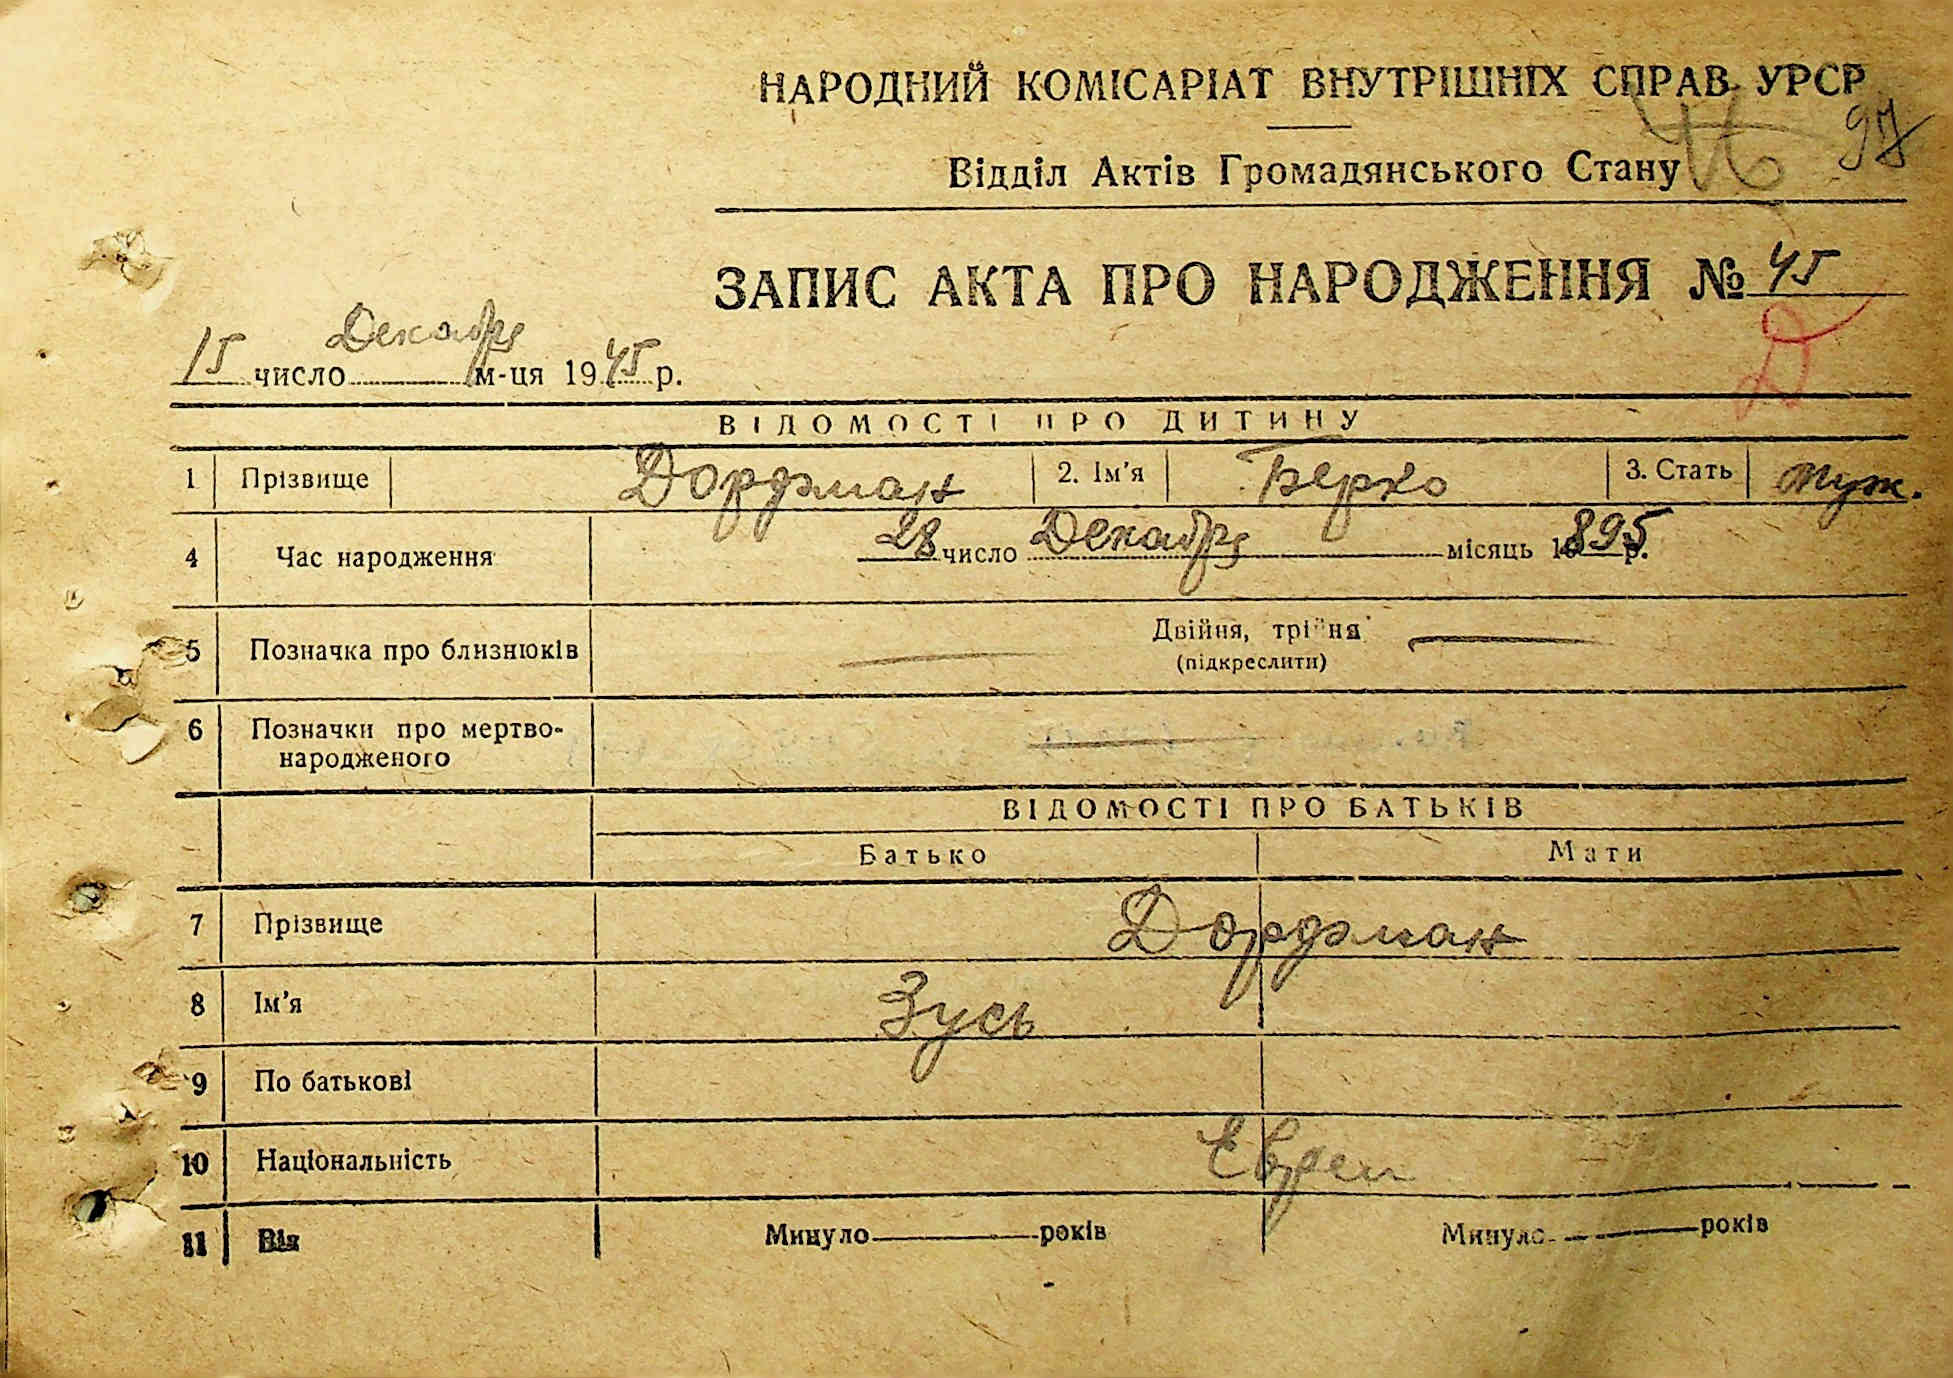 НАРОДНИЙ КОМІСАРІАТ ВНУТРІШНІХ СПРАВ УРСР
97
Відділ Актів Громадянського Стану
ЗАПИС АКТА ПРО НАРОДЖЕННЯ № 45
Д
15 число Декабря м-ця 1945 р.
ВІДОМОСТІ ПРО ДИТИНУ
1 Прізвище Дордман 2. Ім'я Берко 3. Стать муж.
4 Час народження 28 число Декабря місяць 1895 р.
5 Позначка про близнюків Двійня, трійня
(підкреслити)
6 Позначки про мертво-
народженого
ВІДОМОСТІ ПРО БАТЬКІВ
Батько Мати
7 Прізвище Дордман
8 Ім'я Зусь
9 По батькові
10 Національність Евреи
11 Вік Минуло років Минуло років